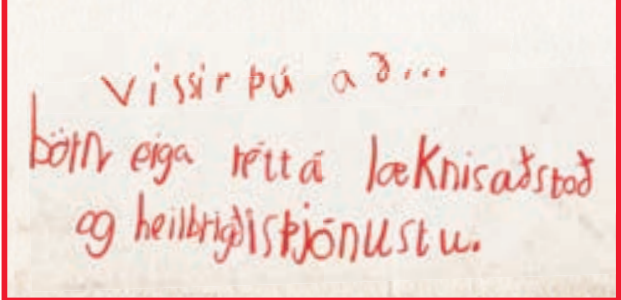 Vissir þú að...
börn eiga rétt á læknisaðstoð
og heilbrigðisþjónustu.